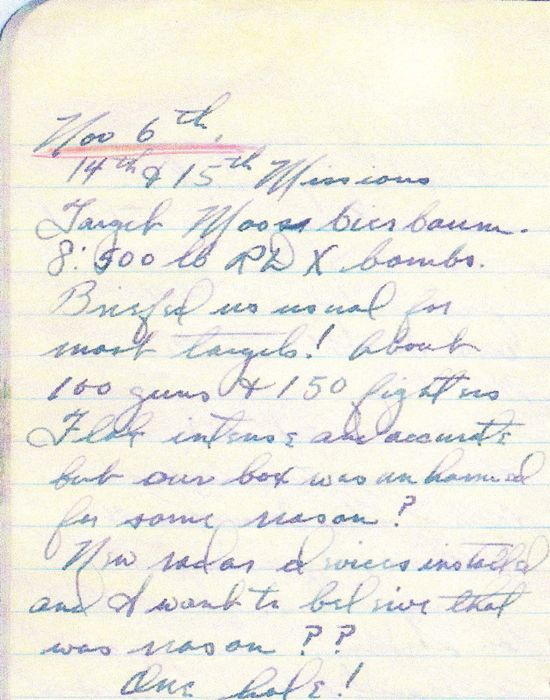 Nov 6th.
14th & 15th Missions
Target Moosbierbaum.
8: 500 lb RDX bombs.
Briefed as usual for
most targets! About
100 guns & 150 fighters
Flak intense and accurate
but our box was unharmed
for some reason?
New radar devices installed
and I want to believe that
was reason ??
One hole!